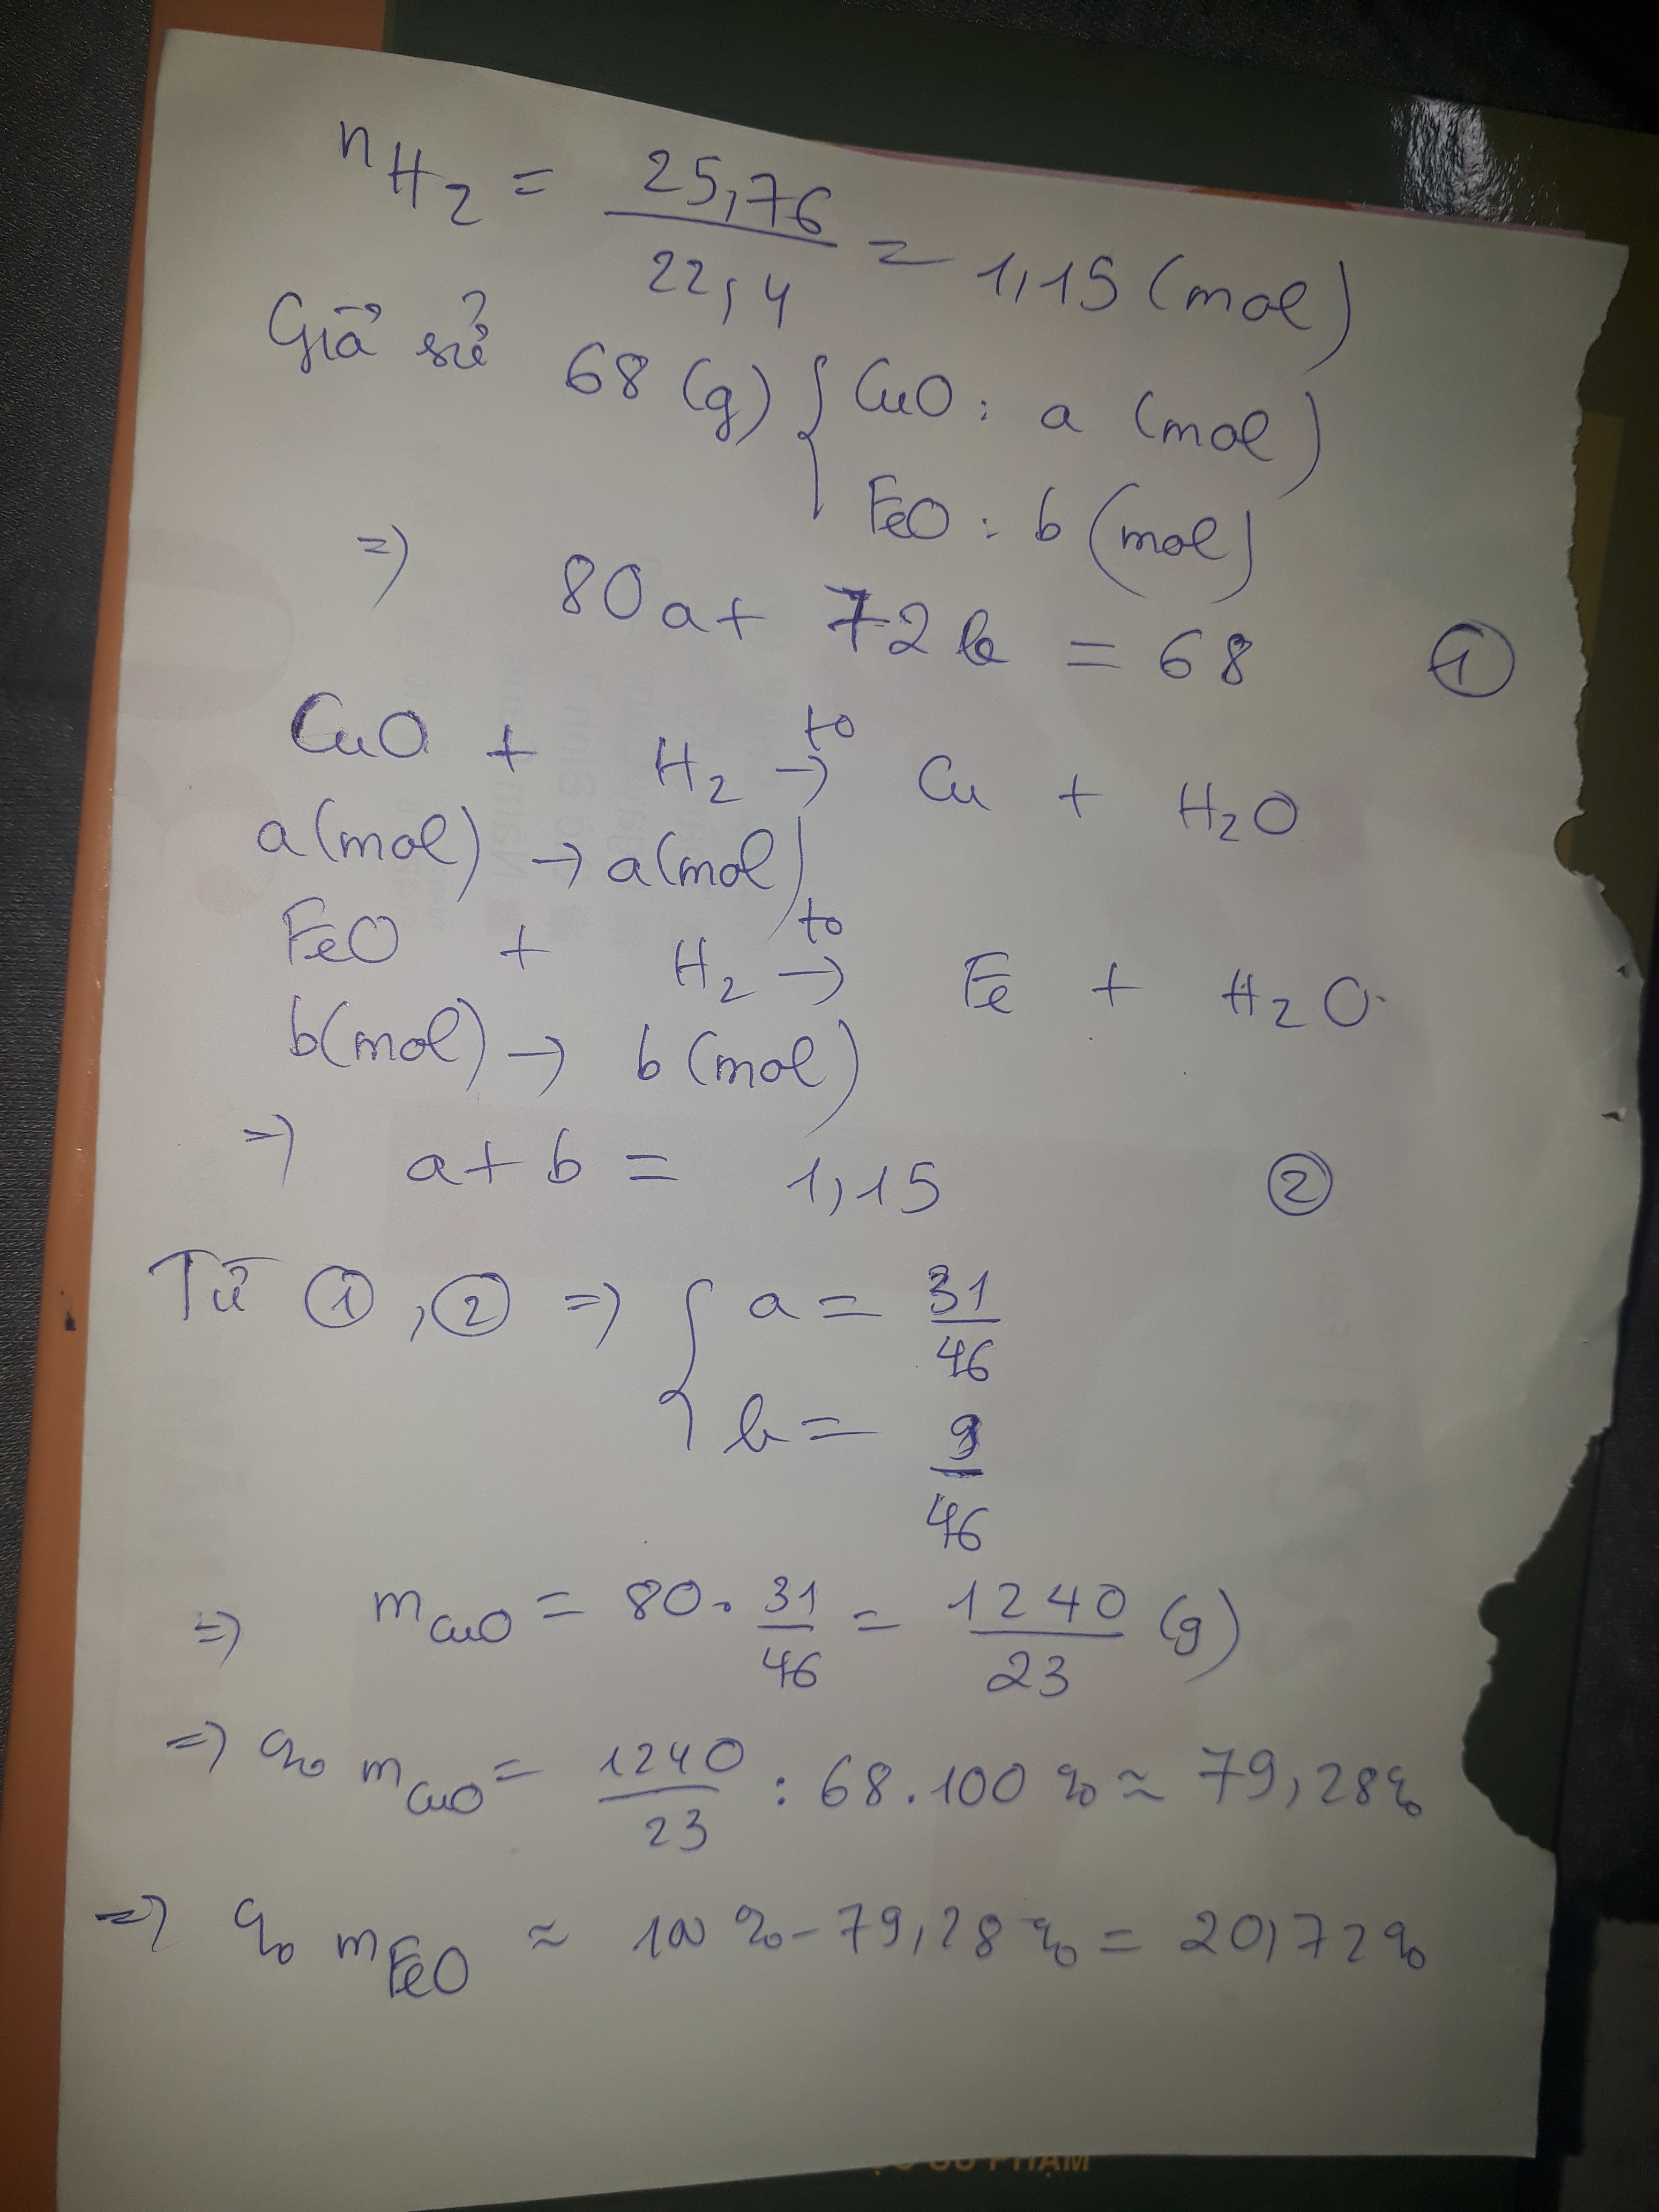 nH2 = 25,76 / 22,4 = 1,15 (mol)
Giả sử 68 (g) { CuO : a (mol)
FeO : b (mol)
=> 80a + 72b = 68 ①
CuO + H2 →to Cu + H2O
a(mol) → a(mol)
FeO + H2 →to Fe + H2O
b(mol) → b(mol)
=> a + b = 1,15 ②
Từ ①, ② => { a = 31/46
b = 9/46
=> mCuO = 80 . 31/46 = 1240/23 (g)
=> % mCuO = 1240/23 : 68 . 100 % ≈ 79,28%
=> % mFeO ≈ 100% - 79,28% = 20,72%
PHẠM